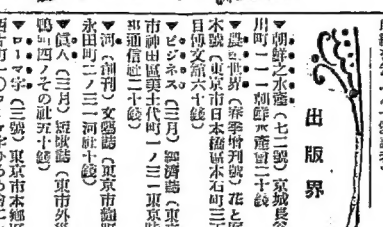 出版界
▼朝鮮之水產（七二號）京城長谷
川町一一一朝鮮水產會二十錢
▼農業世界（春季增刊號）花と
木號（東京市日本橋區本石町三
目博文館六十錢）
▼ビジネス（三月）經濟誌（東京
市神田區美土代町一ノ三一東京
通信社二十錢）
▼河（創刊）文藝誌（東京市麴町
永田町一ノ三一河社十錢）
▼眞人（三月）短歌誌（東市外
鴨町四ノ その社五十錢）
▼ローマ字（三號）東京市本鄕